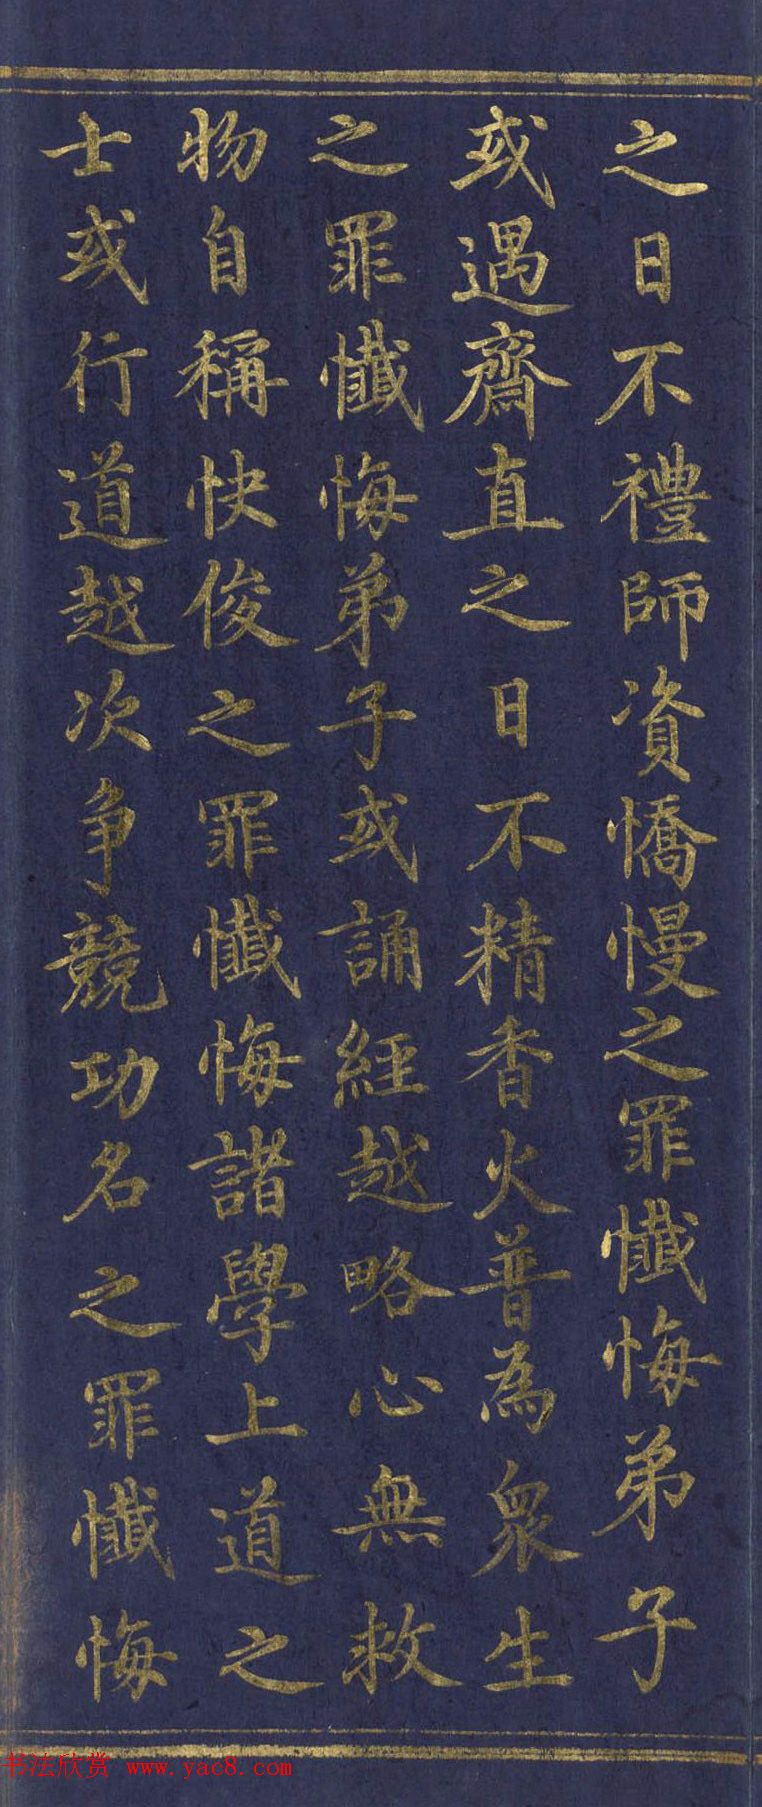 之日不禮師資憍慢之罪懺悔弟子
或遇齋直之日不精香火普為眾生
之罪懺悔弟子或誦經越略心無救
物自稱快俊之罪懺悔諸學上道之
士或行道越次爭競功名之罪懺悔
书法欣赏 www.yac8.com